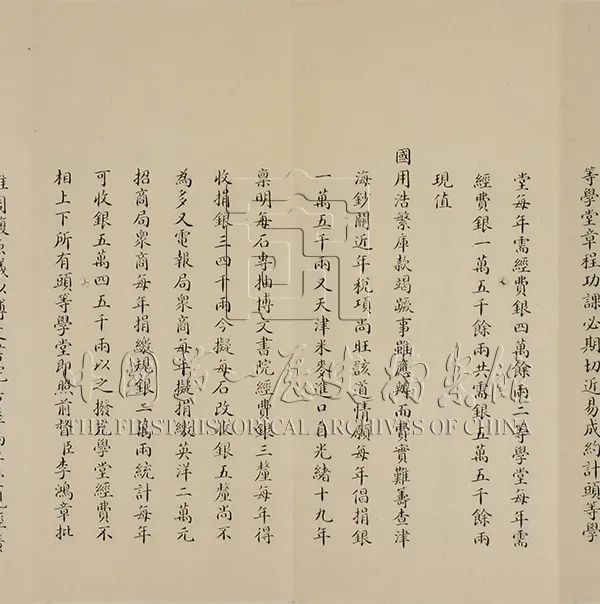 等學堂章程功課必期切近易成約計頭等學
堂每年需經費銀四萬餘兩二等學堂每年需
經費銀一萬五千餘兩共需銀五萬五千餘兩
現值
國用浩繁庫款竭蹶事雖應辦而費實難籌查津
海鈔關近年稅項尚旺該道情願每年倡捐銀
一萬五千兩又天津米麥進口自光緒十九年
稟明每石專抽博文書院經費銀三釐每年得
收捐銀三四千兩今擬每石改收銀五釐尚不
為多又電報局眾商每年擬捐繳英洋二萬元
招商局眾商每年捐繳規銀二萬兩統計每年
可收銀五萬四五千兩以之撥充學堂經費不
相上下所有頭等學堂即照前督臣李鴻章批
中國第一歷史檔案館
THE FIRST HISTORICAL ARCHIVES OF CHINA